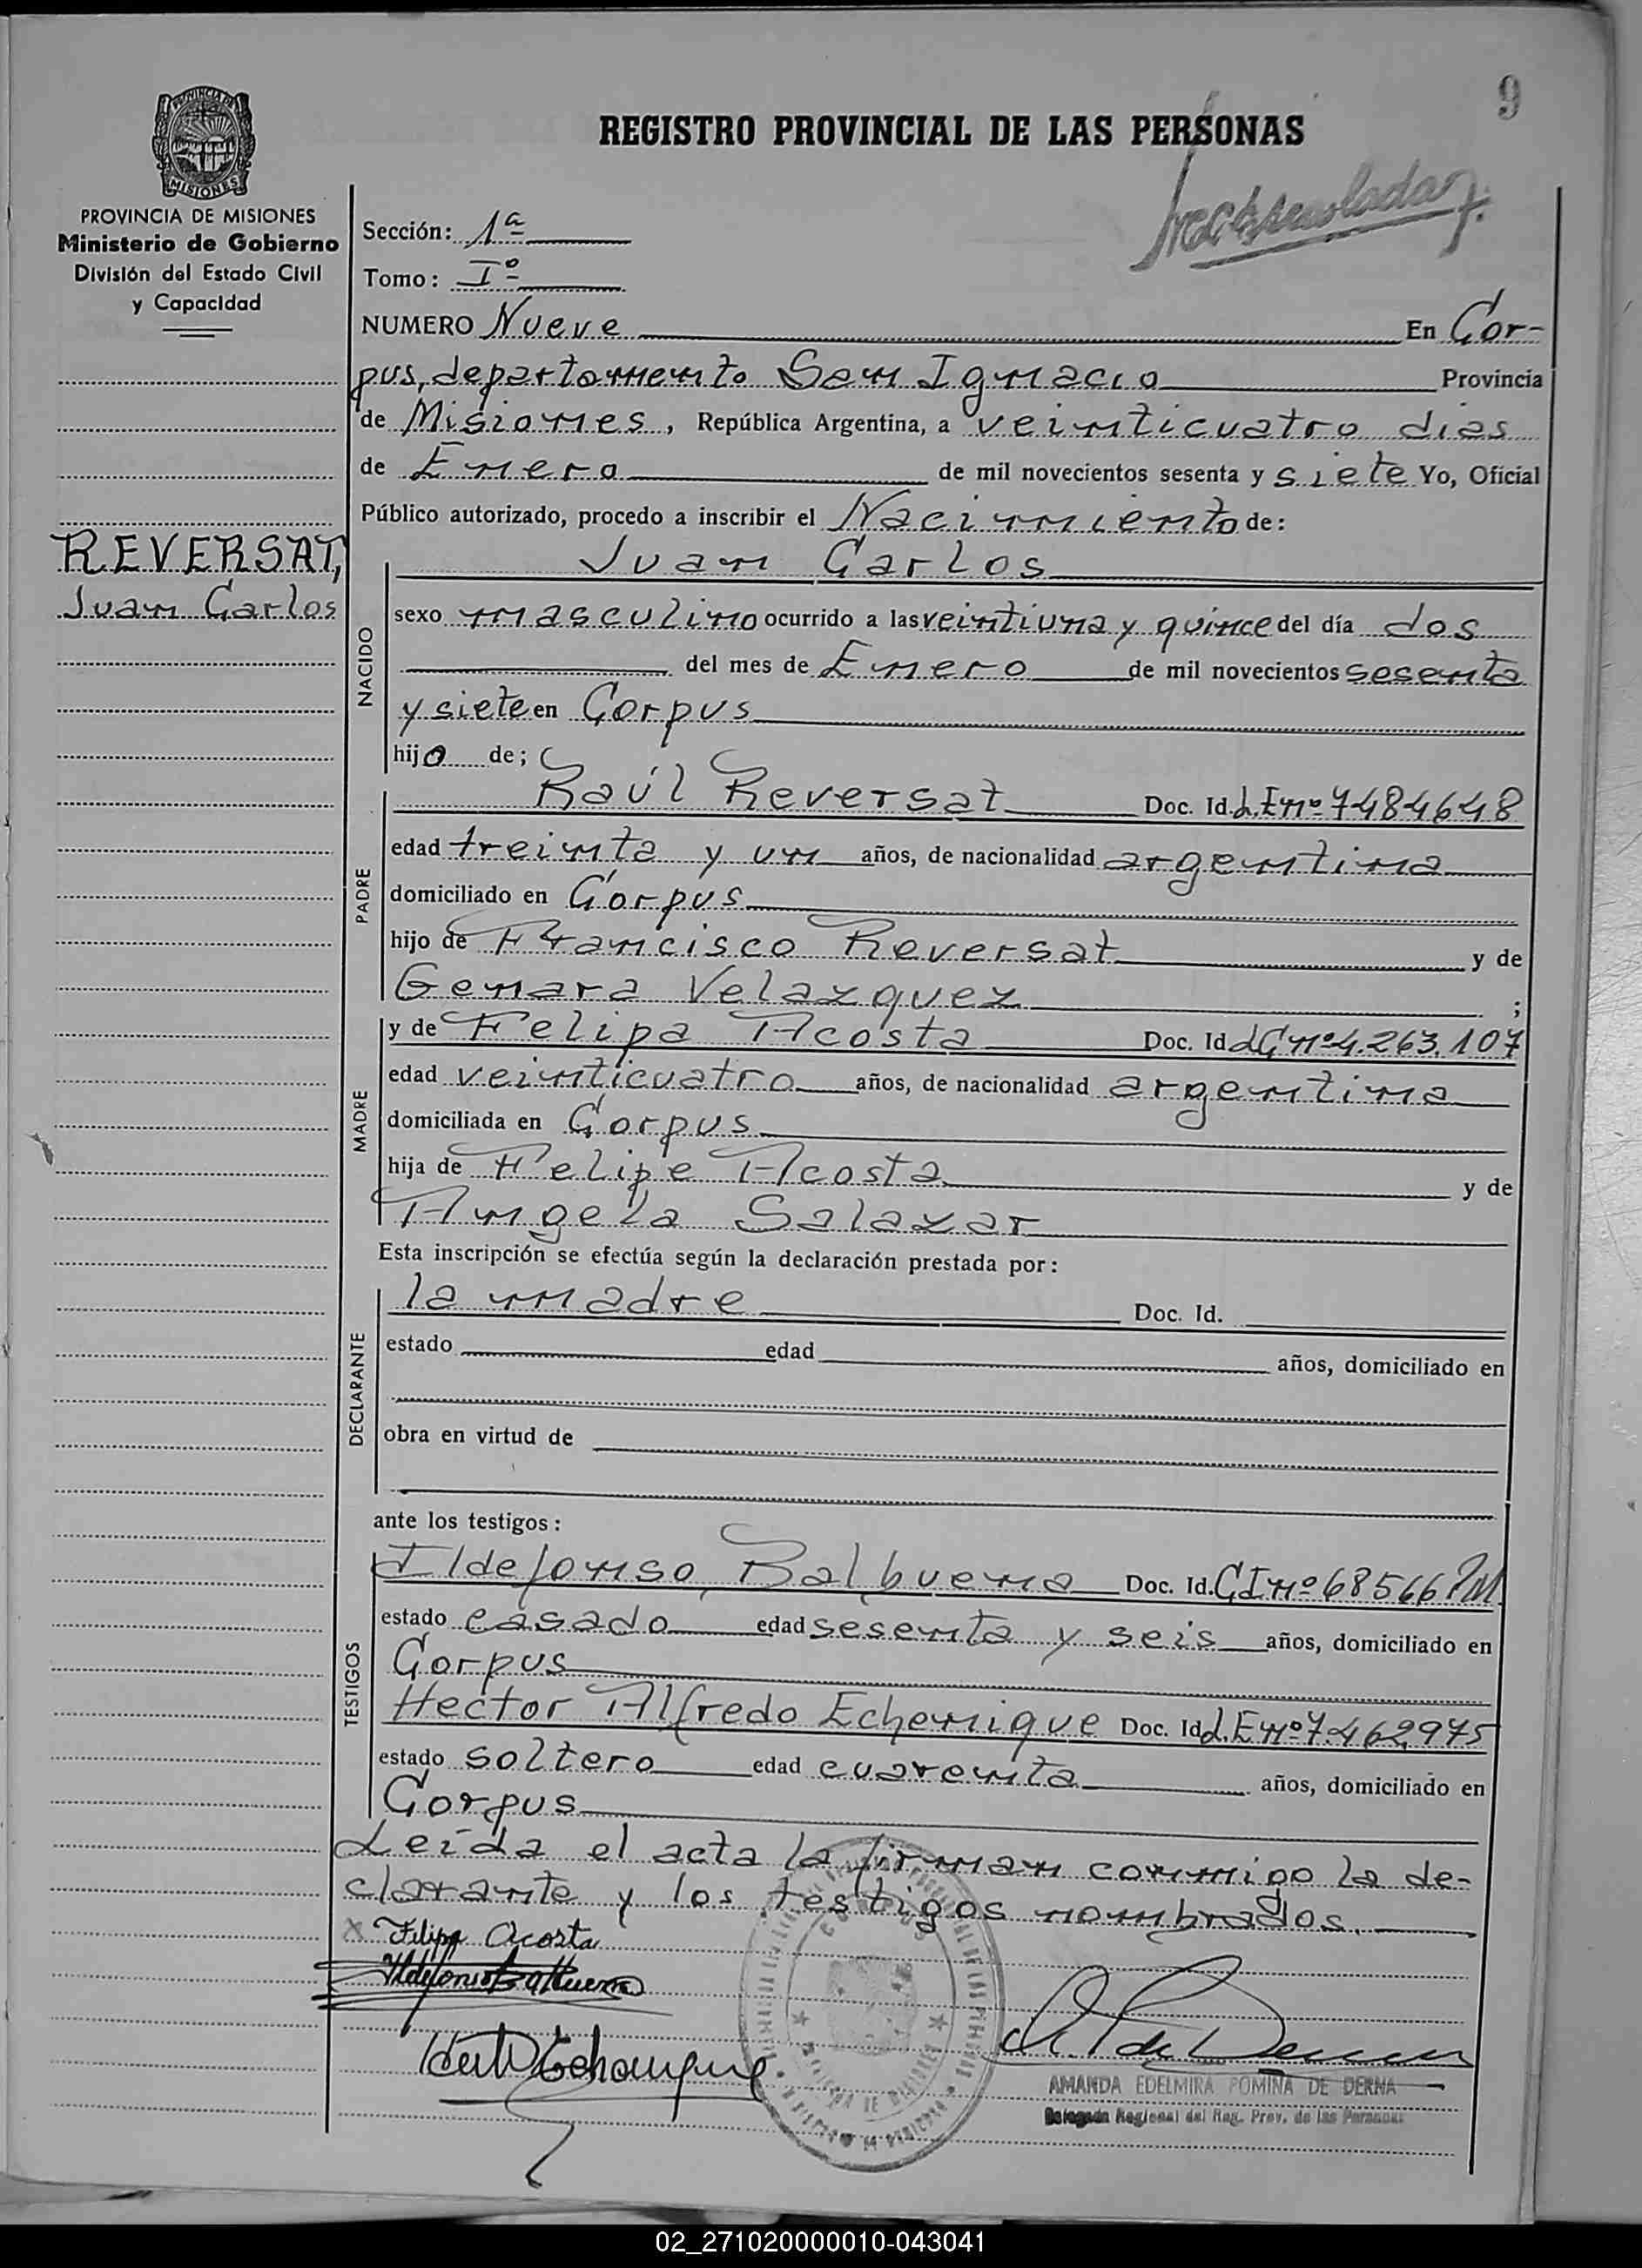 9
REGISTRO PROVINCIAL DE LAS PERSONAS
PROVINCIA DE MISIONES
Ministerio de Gobierno
División del Estado Civil
y Capacidad
MISIONES
Sección: 1ª
Tomo: Iº
NUMERO Nueve En Cor-
pus, departamento San Ignacio Provincia
de Misiones, República Argentina, a veinticuatro dias
de Enero de mil novecientos sesenta y siete Yo, Oficial
Público autorizado, procedo a inscribir el Nacimiento de:
REVERSAT,
Juan Carlos
NACIDO
Juan Carlos
sexo masculino ocurrido a las veintiuna y quince del día dos
del mes de Enero de mil novecientos sesenta
y siete en Corpus
hijo de;
PADRE
Raúl Reversat Doc. Id. L.E nº 7484648
edad treinta y un años, de nacionalidad argentina
domiciliado en Corpus
hijo de Francisco Reversat y de
Genara Velazquez ;
MADRE
y de Felipa Acosta Doc. Id LC nº 4.263.107
edad veinticuatro años, de nacionalidad argentina
domiciliada en Corpus
hija de Felipe Acosta y de
Angela Salazar
Esta inscripción se efectúa según la declaración prestada por:
DECLARANTE
la madre Doc. Id.
estado edad años, domiciliado en
obra en virtud de
ante los testigos:
TESTIGOS
Ildefonso Balbuena Doc. Id. CI nº 68566
estado casado edad sesenta y seis años, domiciliado en
Corpus
Hector Alfredo Echenique Doc. Id L.E nº 7.462975
estado soltero edad cuarenta años, domiciliado en
Corpus
Leída el acta la firman conmigo la de-
clarante y los testigos nombrados.
x Filipa Acosta
Ildefonso Balbuena
Echenique
AMANDA EDELMIRA POMINA DE DERNA
Delegada Regional del Reg. Prov. de las Personas
02_271020000010-043041